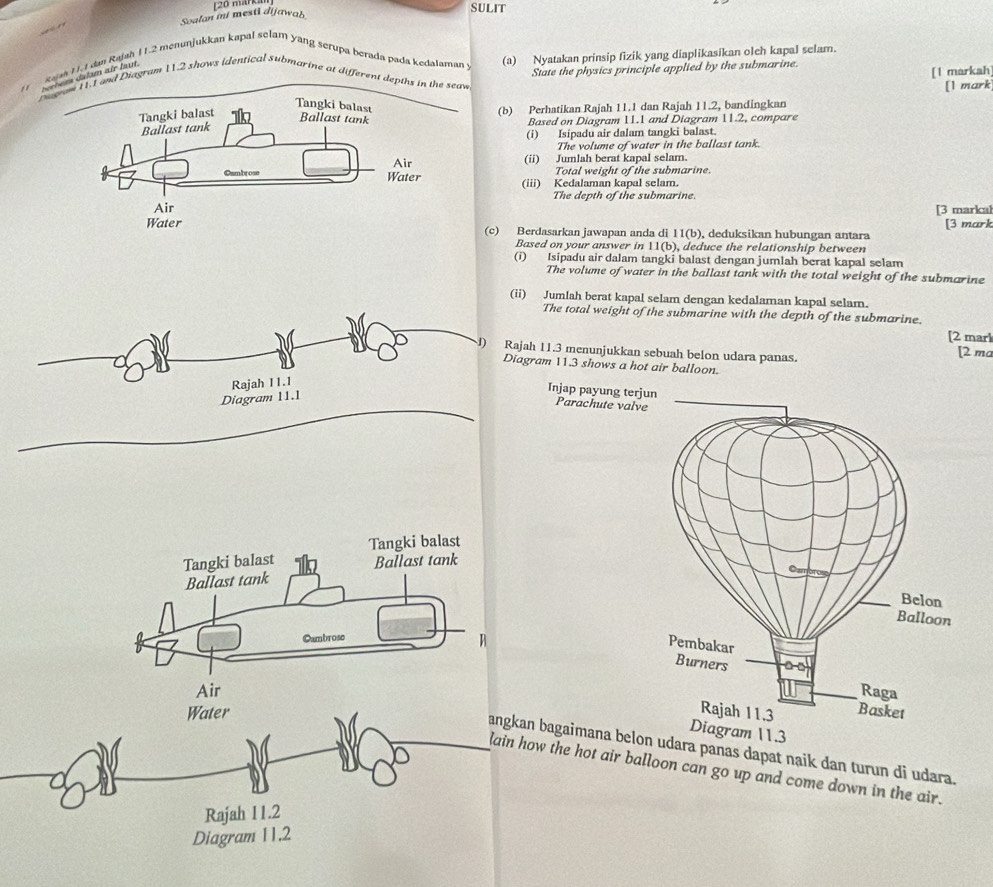 [20 markah]
SULIT
Soalan ini mesti dijawab.
Rajah 11.1 dan Rajah 11.2 menunjukkan kapal selam yang serupa berada pada kedalaman y
berbeza dalam air laut.
Diagram 11.1 and Diagram 11.2 shows identical submarine at different depths in the seaw
Tangki balast
Ballast tank
Tangki balast
Ballast tank
©ambrose
Air
Water
Air
Water
Rajah 11.1
Diagram 11.1
Tangki balast
Ballast tank
Tangki balast
Ballast tank
©ambrose
Air
Water
Rajah 11.2
Diagram 11.2
(a) Nyatakan prinsip fizik yang diaplikasikan oleh kapal selam.
State the physics principle applied by the submarine.
[1 markah]
[1 mark]
(b) Perhatikan Rajah 11.1 dan Rajah 11.2, bandingkan
Based on Diagram 11.1 and Diagram 11.2, compare
(i) Isipadu air dalam tangki balast.
The volume of water in the ballast tank.
(ii) Jumlah berat kapal selam.
Total weight of the submarine.
(iii) Kedalaman kapal selam.
The depth of the submarine.
[3 markah
[3 mark
(c) Berdasarkan jawapan anda di 11(b), deduksikan hubungan antara
Based on your answer in 11(b), deduce the relationship between
(i) Isipadu air dalam tangki balast dengan jumlah berat kapal selam
The volume of water in the ballast tank with the total weight of the submarine
(ii) Jumlah berat kapal selam dengan kedalaman kapal selam.
The total weight of the submarine with the depth of the submarine.
[2 mark
[2 ma
Rajah 11.3 menunjukkan sebuah belon udara panas.
Diagram 11.3 shows a hot air balloon.
Injap payung terjun
Parachute valve
©ambrose
Belon
Balloon
Pembakar
Burners
Raga
Basket
Rajah 11.3
Diagram 11.3
angkan bagaimana belon udara panas dapat naik dan turun di udara.
lain how the hot air balloon can go up and come down in the air.